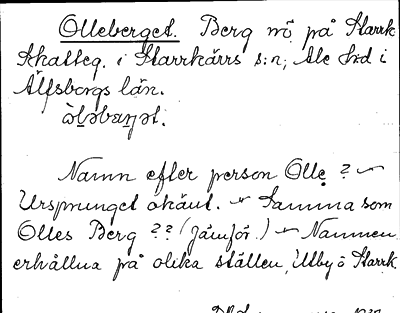 Olleberget. Berg nö på Starrk
Skatteg. i Starrkärrs s:n, Ale hrd i
Älfsborgs län.
òləbærjət.
Namn efter person Olle ? ~
Ursprunget okänt. ~ Samma som
Olles Berg ?? (Jämför.) ~ Namnen
erhållna på olika ställen, Utby ö Starrk